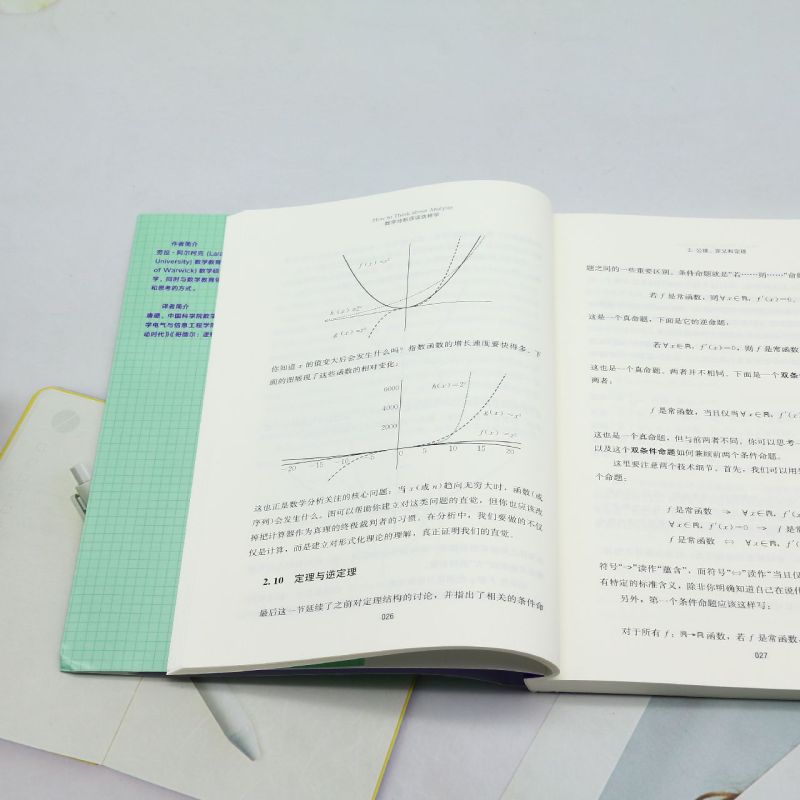 作者简介
劳拉·阿尔柯克 (Lara
University) 数学教育
of Warwick) 数学硕
学,同时与数学教育
和思考的方式。
译者简介
唐璐,中国科学院数学
学电气与信息工程学院
动时代》《哥德尔:逻辑
How to Think about Analysis
数学分析应该这样学
f(x)=x²
h(x)=2ˣ
g(x)=x³
你知道 x 的值变大后会发生什么吗?指数函数的增长速度要快得多。下
面的图展现了这些函数的相对变化:
6000
4000
2000
h(x)=2ˣ
g(x)=x³
f(x)=x²
-20 -15 -10 -5 0 5 10 15 20
这也正是数学分析关注的核心问题:当 x(或 n)趋向无穷大时,函数(或
序列)会发生什么。图可以帮助你建立对这类问题的直觉,但你也应该改
掉把计算器作为真理的终极裁判者的习惯。在分析中,我们要做的不仅
仅是计算,而是建立对形式化理论的理解,真正证明我们的直觉。
2.10 定理与逆定理
最后这一节延续了之前对定理结构的讨论,并指出了相关的条件命
026
2. 公理、定义和定理
题之间的一些重要区别。条件命题就是“若……则……”命题
若 f 是常函数,则 ∀x∈ℝ, f′(x)=0。
这是一个真命题,下面是它的逆命题。
若 ∀x∈ℝ, f′(x)=0,则 f 是常函数
这也是一个真命题。两者并不相同。下面是一个双条
两者:
f 是常函数,当且仅当 ∀x∈ℝ, f′(x
这也是一个真命题,但与前两者不同。你可以思考一
以及这个双条件命题如何兼顾前两个条件命题。
这里要注意两个技术细节。首先,我们可以用
个命题:
f 是常函数 ⇒ ∀x∈ℝ, f′(x)
∀x∈ℝ, f′(x)=0 ⇒ f 是常
f 是常函数 ⇔ ∀x∈ℝ, f′(x
符号“⇒”读作“蕴含”,而符号“⇔”读作“当且仅
有特定的标准含义,除非你明确知道自己在说什
另外,第一个条件命题应该这样写:
对于所有 f:ℝ→ℝ函数,若 f 是常函数,
027